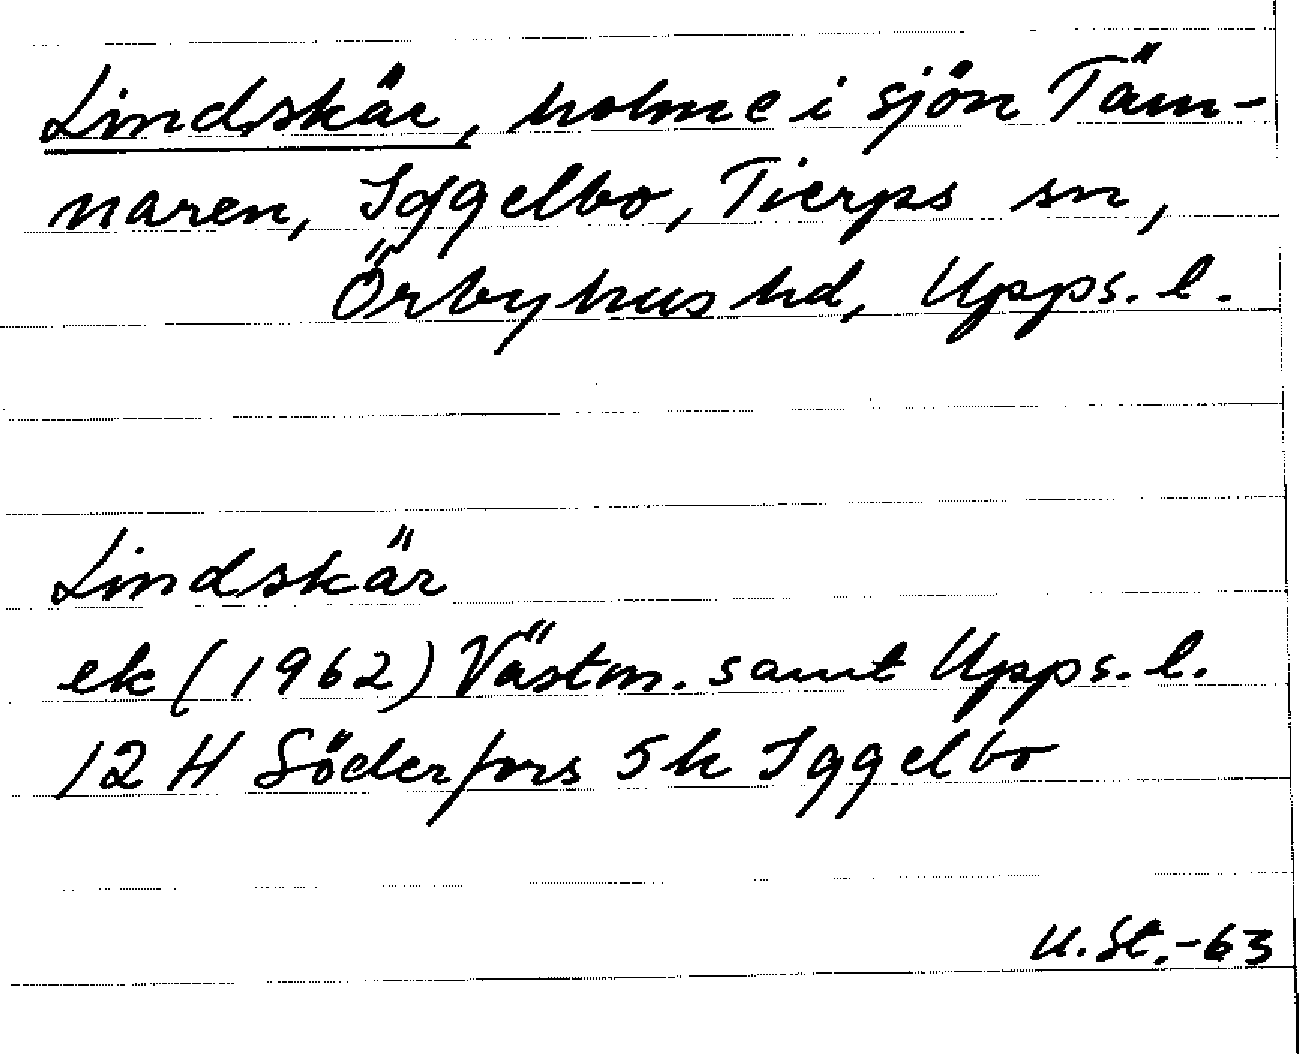 Lindskär, holme i sjön Täm-
naren, Iggelbo, Tierps sn,
Örbyhus hd, Upps. l.
Lindskär
ek (1962) Västm. samt Upps. l.
12 H Söderfors 5k Iggelbo
U. St. -63